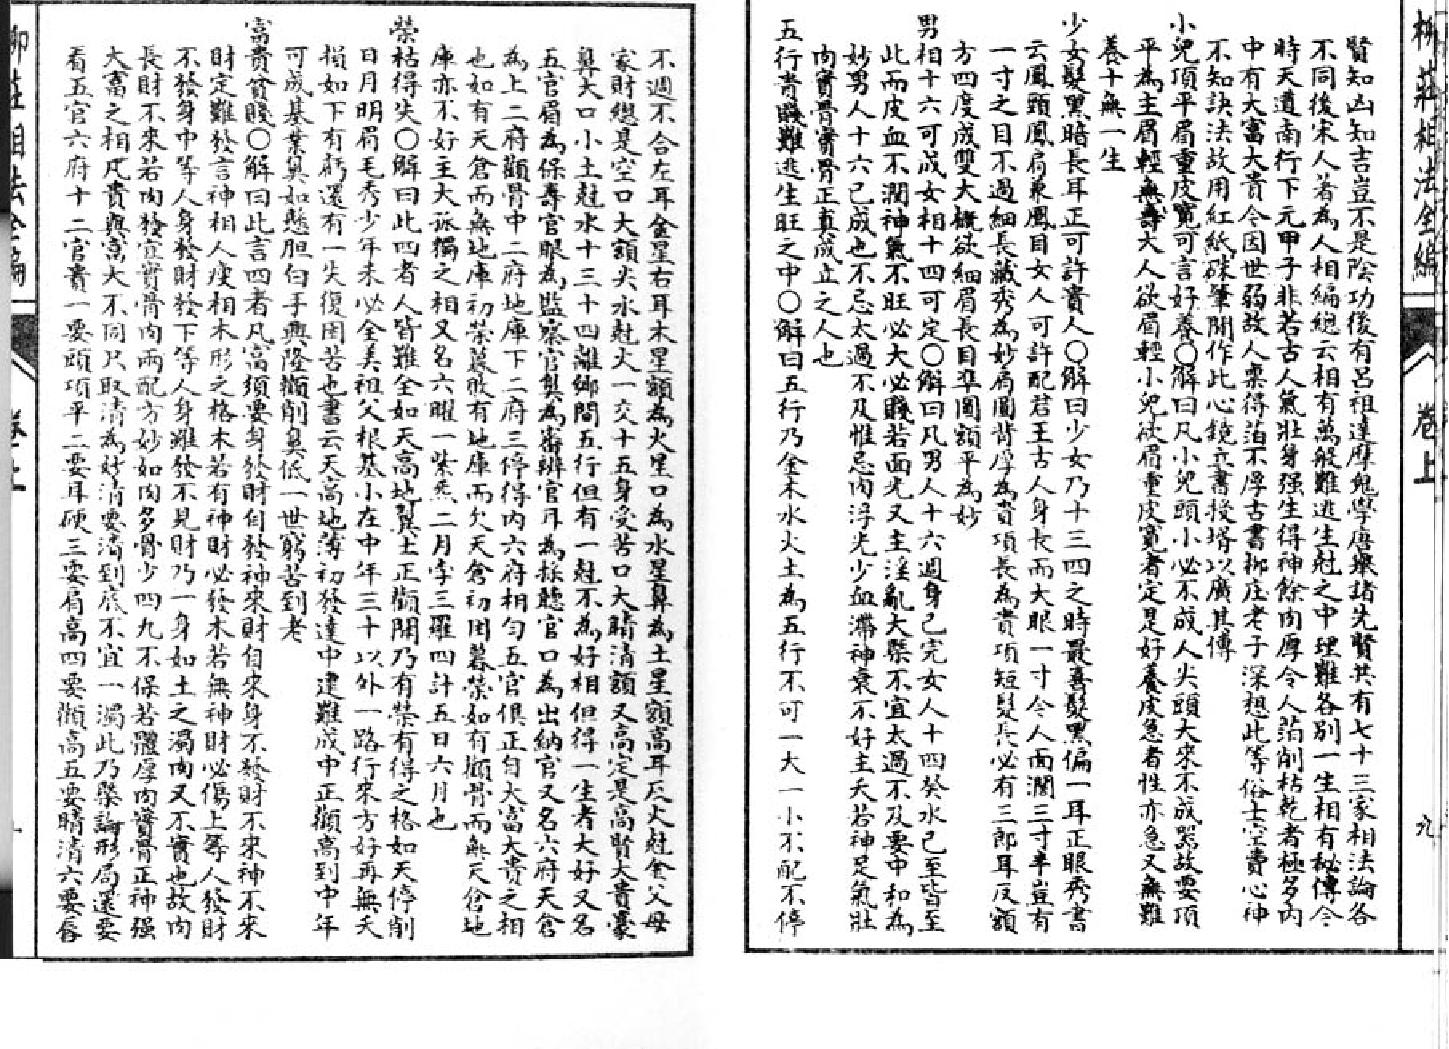 柳莊相法全編
卷上
九
賢知凶知吉豈不是陰功後有呂祖達摩鬼學唐舉諸先賢共有七十三家相法論各
不同後宋人著為人相編總云相有萬般難逃生尅之中理難各別一生相有秘傳今
時天遣南行下元甲子非若古人氣壯身强生得神餘肉厚今人萡削枯乾者極多內
中有大富大貴今因世弱故人稟得萡不厚古書柳庄老子深想此等俗士空費心神
不知訣法故用紅紙硃筆開作此心鏡立書授壻以廣其傳
小兒項平眉重皮寬可言好養〇解曰凡小兒頭小必不成人尖頭大來不成器故要頂
平為主眉輕無壽大人欲眉輕小兒欲眉重皮寬者定是好養皮急者性亦急又無難
養十無一生
少女髮黑暗長耳正可許貴人〇解曰少女乃十三四之時最喜髮黑偏一耳正眼秀書
云鳳頭鳳肩兼鳳目女人可許配君王古人身長而大眼一寸今人面濶三寸半豈有
一寸之目不過細長藏秀為妙肩圓背厚為貴項長為貴項短髮長必有三郎耳反額
方四度成雙大概欲細眉長目準圓額平為妙
男相十六可成女相十四可定〇解曰凡男人十六週身已完女人十四癸水已至皆至
此而皮血不潤神氣不旺必大必賤若面光又主淫亂大槩不宜太過不及要中和為
妙男人十六已成也不忌太過不及惟忌肉浮光少血滯神衰不好主夭若神足氣壯
肉實骨實骨正直成立之人也
五行青賤難逃生旺之中〇解曰五行乃金木水火土為五行不可一大一小不配不停
不週不合左耳金星右耳木星額為火星口為水星鼻為土星額高耳反火尅金父母
家財總是空口大額尖水尅火一交十五身受苦口大睛清額又高定是高賢大貴豪
鼻大口小土尅水十三十四離鄉閭五行但有一尅不為好相但得一生者大好又名
五官眉為保壽官眼為監察官鼻為審辨官耳為採聽官口為出納官又名六府天倉
為上二府顴骨中二府地庫下二府三停得內六府相勻五官俱正自大富大貴之相
也如有天倉而無地庫初榮暮敗有地庫而欠天倉初困暮榮如有顴骨而無天倉地
庫亦不好主大孤獨之相又名六曜一紫炁二月孛三羅四計五日六月也
榮枯得失〇解曰此四者人皆難全如天高地巽土正顴開乃有榮有得之格如天停削
日月明眉毛秀少年未必全美祖父根基小在中年三十以外一路行來方好再無夭
損如下有虧還有一失復困苦也書云天高地薄初發達中建難成中正顴高到中年
可成基業鼻如懸胆白手興隆顴削鼻低一世窮苦到老
富貴貧賤〇解曰此言四者凡富須要身發財自發神來財自來身不發財不來神不來
財定難發言神相人瘦相木形之格木若有神財必發木若無神財必傷上等人發財
不發身中等人身發財發下等人身雖發不見財乃一身如土之濁肉又不實也故肉
長財不來若肉發宜實骨肉兩配方妙如肉多骨少四九不保若體厚肉實骨正神强
大富之相凡貴與富大不同只取清為妙清要清到底不宜一濁此乃槩論形局還要
看五官六府十二官貴一要頭項平二要耳硬三要肩高四要顴高五要睛清六要唇
柳莊相法全編
卷上